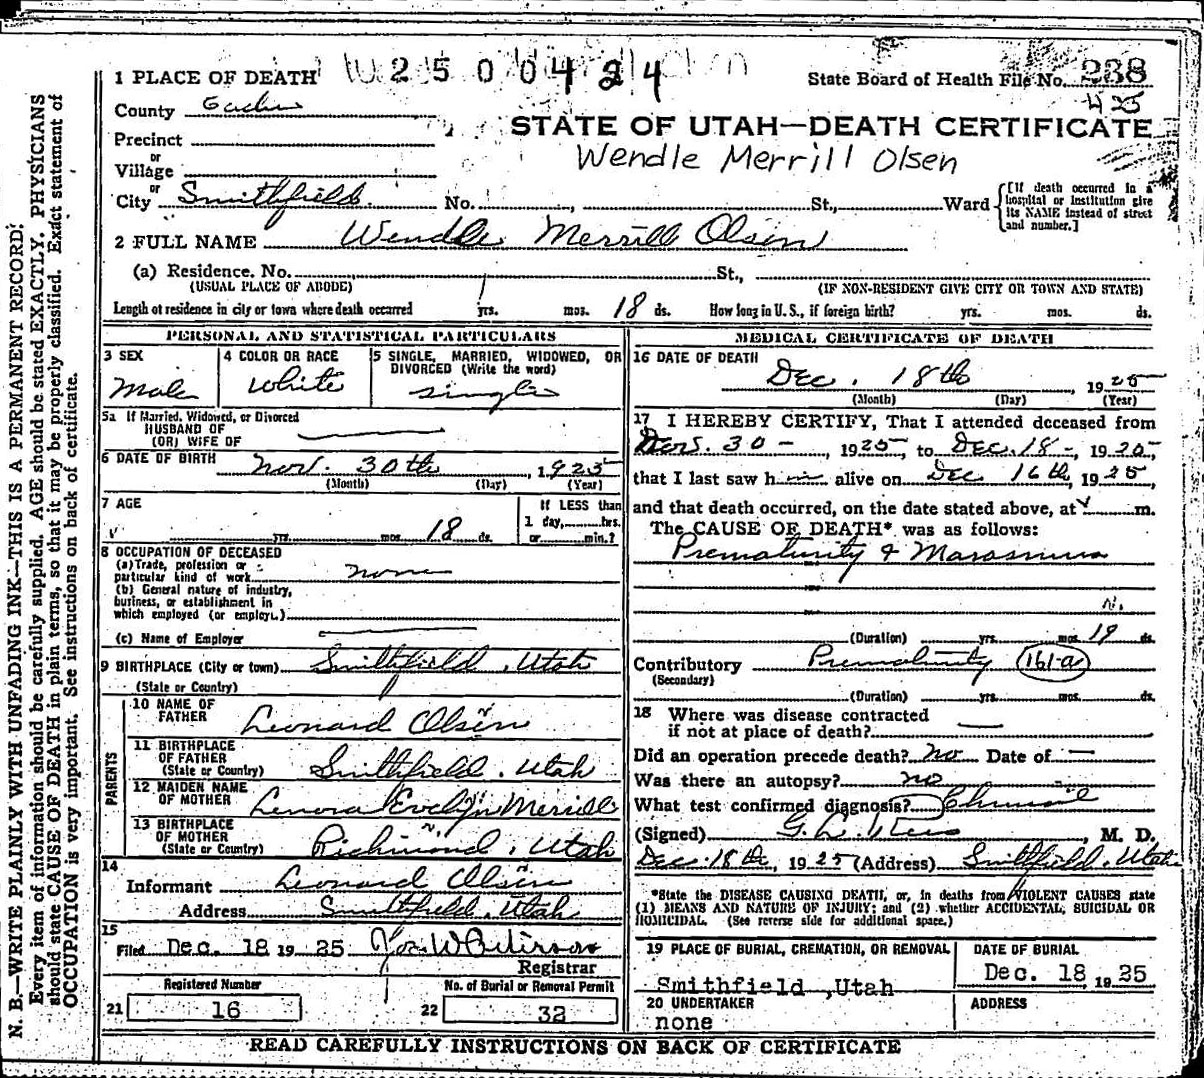 N. B.—WRITE PLAINLY WITH UNFADING INK—THIS IS A PERMANENT RECORD;
Every item of information should be carefully supplied. AGE should be stated EXACTLY. PHYSICIANS
should state CAUSE OF DEATH in plain terms, so that it may be properly classified. Exact statement of
OCCUPATION is very important. See instructions on back of certificate.
2500424
1 PLACE OF DEATH
State Board of Health File No. 238
425
County
STATE OF UTAH—DEATH CERTIFICATE
Precinct
or
Wendle Merrill Olsen
Village
or
City Smithfield No. , St., Ward
[If death occurred in a
hospital or institution give
its NAME instead of street
and number.]
2 FULL NAME Wendle Merrill Olsen
(a) Residence. No. St.,
(USUAL PLACE OF ABODE) (IF NON-RESIDENT GIVE CITY OR TOWN AND STATE)
Length of residence in city or town where death occurred yrs. mos. 18 ds. How long in U. S., if foreign birth? yrs. mos. ds.
PERSONAL AND STATISTICAL PARTICULARS
3 SEX
Male
4 COLOR OR RACE
White
5 SINGLE, MARRIED, WIDOWED, OR
DIVORCED (Write the word)
single
5a If Married, Widowed, or Divorced
HUSBAND OF
(OR) WIFE OF
6 DATE OF BIRTH Nov. 30th 1925
(Month) (Day) (Year)
7 AGE
If LESS than
1 day, hrs.
yrs. mos. 18 ds. or min.?
8 OCCUPATION OF DECEASED
(a) Trade, profession or
particular kind of work none
(b) General nature of industry,
business, or establishment in
which employed (or employer)
(c) Name of Employer
9 BIRTHPLACE (City or town) Smithfield, Utah
(State or Country)
PARENTS
10 NAME OF
FATHER Leonard Olsen
11 BIRTHPLACE
OF FATHER
(State or Country) Smithfield, Utah
12 MAIDEN NAME
OF MOTHER Lenora Evelyn Merrill
13 BIRTHPLACE
OF MOTHER
(State or Country) Richmond, Utah
14
Informant Leonard Olsen
Address Smithfield, Utah
15
Filed Dec. 18 1925
Registrar
Registered Number
21 16
No. of Burial or Removal Permit
22 32
MEDICAL CERTIFICATE OF DEATH
16 DATE OF DEATH
Dec. 18th 1925
(Month) (Day) (Year)
17 I HEREBY CERTIFY, That I attended deceased from
30 -, 1925, to Dec. 18 -, 1925,
that I last saw him alive on Dec 16th, 1925,
and that death occurred, on the date stated above, at m.
The CAUSE OF DEATH* was as follows:
Prematurity & Marasmus
(Duration) yrs. mos. 19 ds.
Contributory Prematurity 161-a
(Secondary)
(Duration) yrs. mos. ds.
18 Where was disease contracted
if not at place of death? —
Did an operation precede death? no Date of —
Was there an autopsy? no
What test confirmed diagnosis?
(Signed) G. L. , M. D.
Dec. 18th, 1925 (Address) Smithfield, Utah
*State the DISEASE CAUSING DEATH, or, in deaths from VIOLENT CAUSES state
(1) MEANS AND NATURE OF INJURY; and (2) whether ACCIDENTAL, SUICIDAL OR
HOMICIDAL. (See reverse side for additional space.)
19 PLACE OF BURIAL, CREMATION, OR REMOVAL
Smithfield ,Utah
DATE OF BURIAL
Dec. 18, 1925
20 UNDERTAKER
none
ADDRESS
READ CAREFULLY INSTRUCTIONS ON BACK OF CERTIFICATE